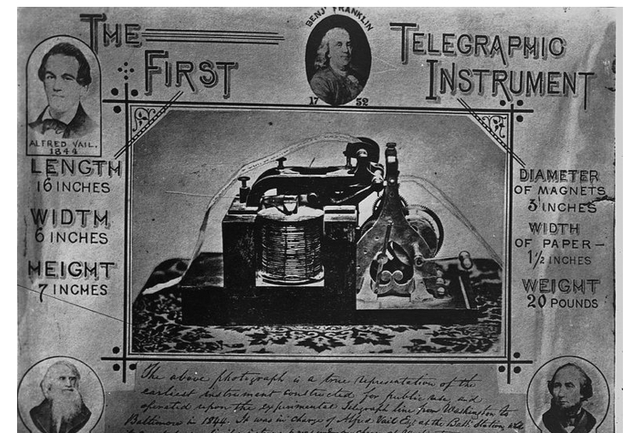 THE FIRST
BENJ. FRANKLIN
1752
TELEGRAPHIC
INSTRUMENT
ALFRED VAIL,
1844
LENGTH
16 INCHES
WIDTH
6 INCHES
HEIGHT
7 INCHES
DIAMETER
OF MAGNETS
3 INCHES
WIDTH
OF PAPER-
1½ INCHES
WEIGHT
20 POUNDS
The above photograph is a true representation of the
earliest instrument constructed for public use and
operated upon the experimental Telegraph line from Washington to
Baltimore in 1844. It was in charge of Alfred Vail Esq. at the Balt. Station